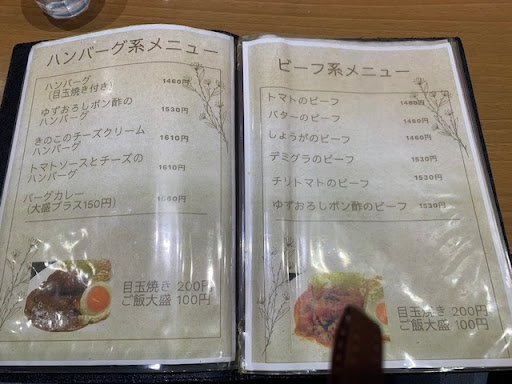 ハンバーグ系メニュー
ハンバーグ
(目玉焼き付き) 1460円
ゆずおろしポン酢の
ハンバーグ 1530円
きのこのチーズクリーム
ハンバーグ 1610円
トマトソースとチーズの
ハンバーグ 1610円
バーグカレー
(大盛プラス150円) 1660円
目玉焼き 200円
ご飯大盛 100円
ビーフ系メニュー
トマトのビーフ 1480円
バターのビーフ 1480円
しょうがのビーフ 1460円
デミグラのビーフ 1530円
チリトマトのビーフ 1530円
ゆずおろしポン酢のビーフ 1530円
目玉焼き 200円
ご飯大盛 100円